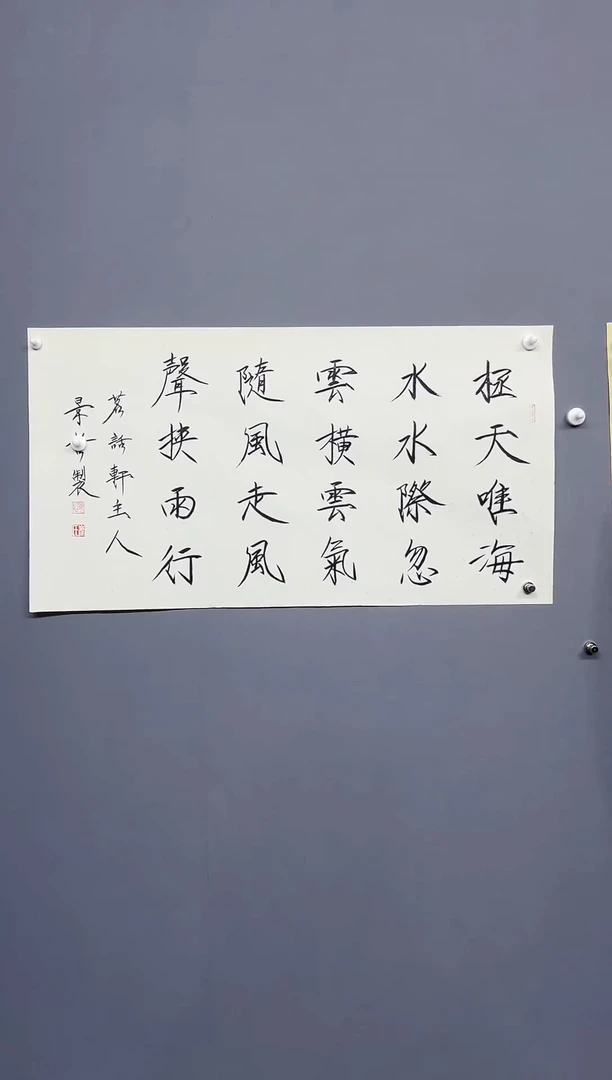 極天唯海
水水際忽
雲橫雲氣
隨風走風
聲挾雨行
茗話軒主人
景 製